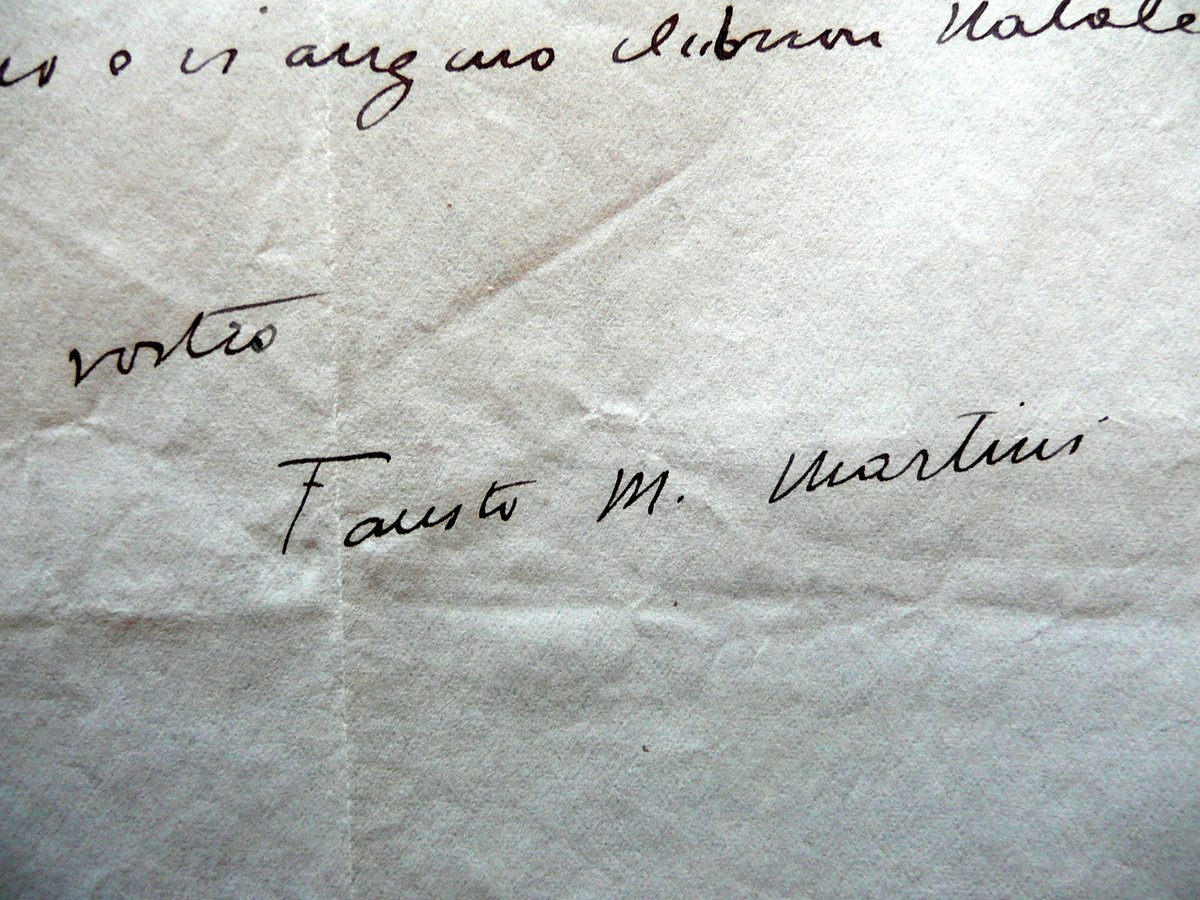 e vi auguro il buon Natale
vostro
Fausto M. Martini